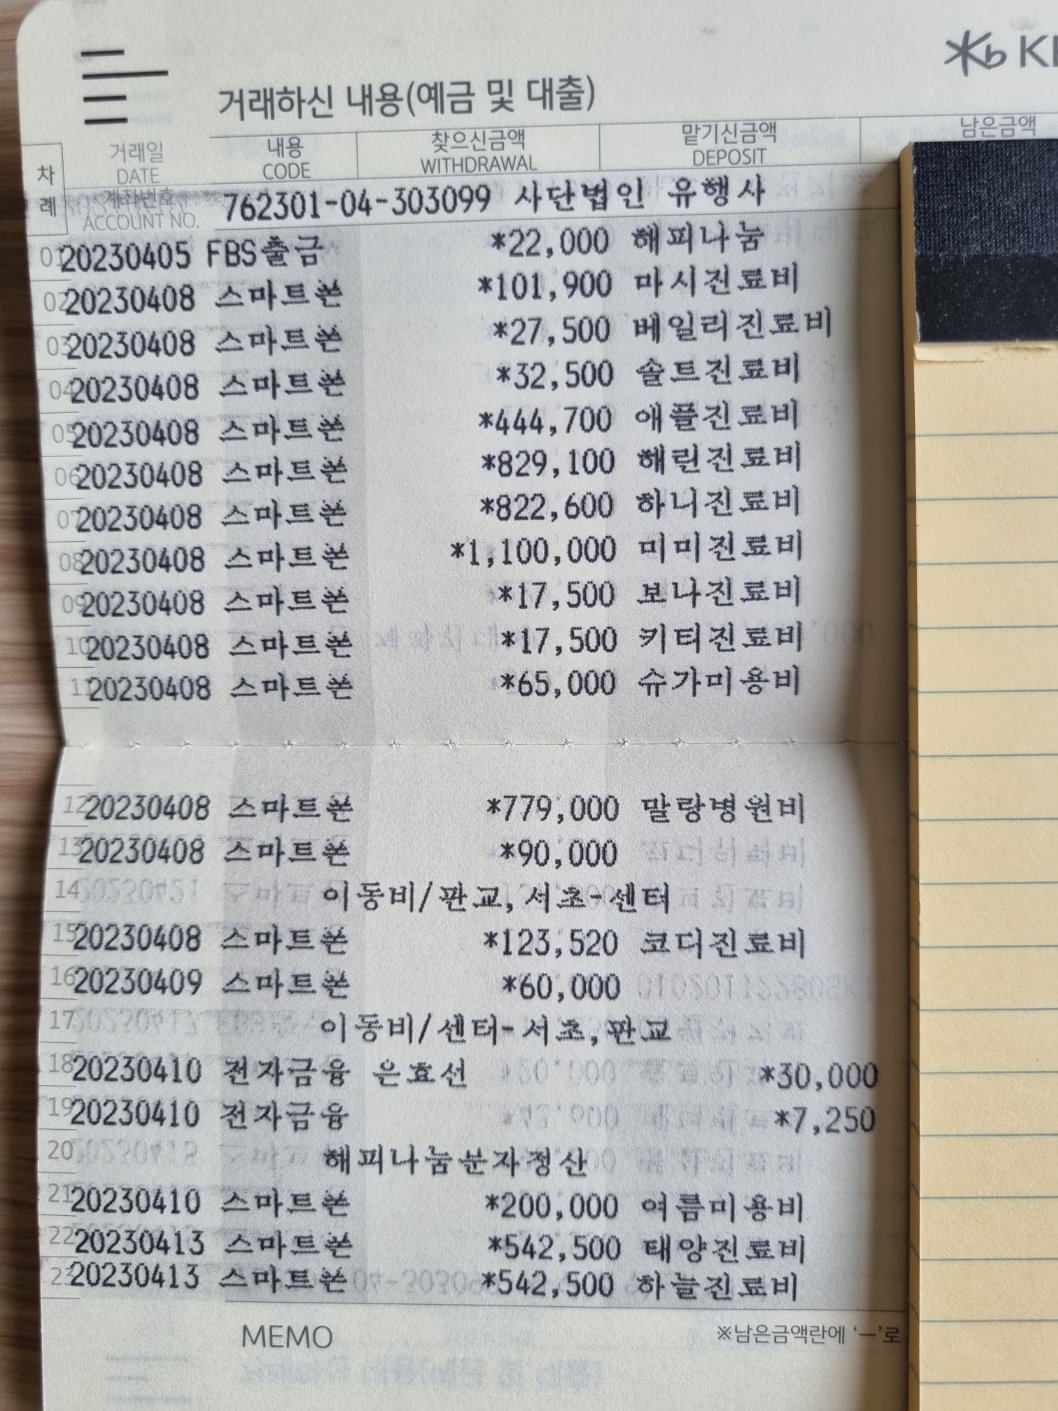 KB
거래하신 내용(예금 및 대출)
차례 거래일 DATE 내용 CODE 찾으신금액 WITHDRAWAL 맡기신금액 DEPOSIT 남은금액
계좌번호 ACCOUNT NO. 762301-04-303099 사단법인 유행사
01 20230405 FBS출금 *22,000 해피나눔
02 20230408 스마트폰 *101,900 마시진료비
03 20230408 스마트폰 *27,500 베일리진료비
04 20230408 스마트폰 *32,500 솔트진료비
05 20230408 스마트폰 *444,700 애플진료비
06 20230408 스마트폰 *829,100 해린진료비
07 20230408 스마트폰 *822,600 하니진료비
08 20230408 스마트폰 *1,100,000 미미진료비
09 20230408 스마트폰 *17,500 보나진료비
10 20230408 스마트폰 *17,500 키티진료비
11 20230408 스마트폰 *65,000 슈가미용비
12 20230408 스마트폰 *779,000 말랑병원비
13 20230408 스마트폰 *90,000
14 이동비/판교,서초-센터
15 20230408 스마트폰 *123,520 코디진료비
16 20230409 스마트폰 *60,000
17 이동비/센터-서초,판교
18 20230410 전자금융 은효선 *30,000
19 20230410 전자금융 *7,250
20 해피나눔분자정산
21 20230410 스마트폰 *200,000 여름미용비
22 20230413 스마트폰 *542,500 태양진료비
23 20230413 스마트폰 *542,500 하늘진료비
MEMO ※남은금액란에 '—'로